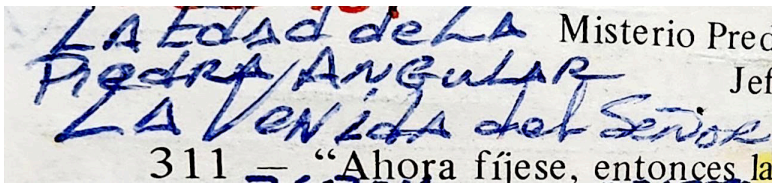 La Edad de La Misterio Pred
Piedra Angular Jef
La Venida del Señor
311 – “Ahora fíjese, entonces la